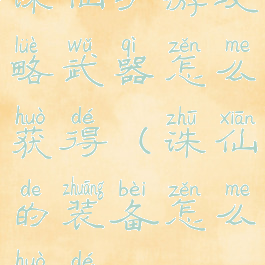 诛仙手游攻
lüè wǔ qì zěn me
略武器怎么
huò dé zhū xiān
获得（诛仙
de zhuāng bèi zěn me
的装备怎么
huò dé